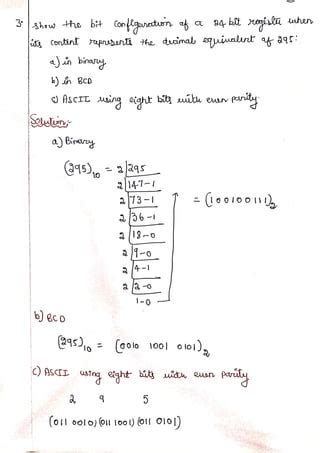 3. Show the bit configuration of a 24 bit register when
its content represents the decimal equivalent of 295:
a) in binary
b) in BCD
c) ASCII using eight bits with even parity
Solution:-
a) Binary
(295)10 = 2 | 295
2 | 147-1
2 | 73-1 = (100100111)2
2 | 36-1
2 | 18-0
2 | 9-0
2 | 4-1
2 | 2-0
1-0
b) BCD
(295)10 = (0010 1001 0101)2
c) ASCII using eight bits with even parity
2 9 5
(011 0010) (011 1001) (011 0101)